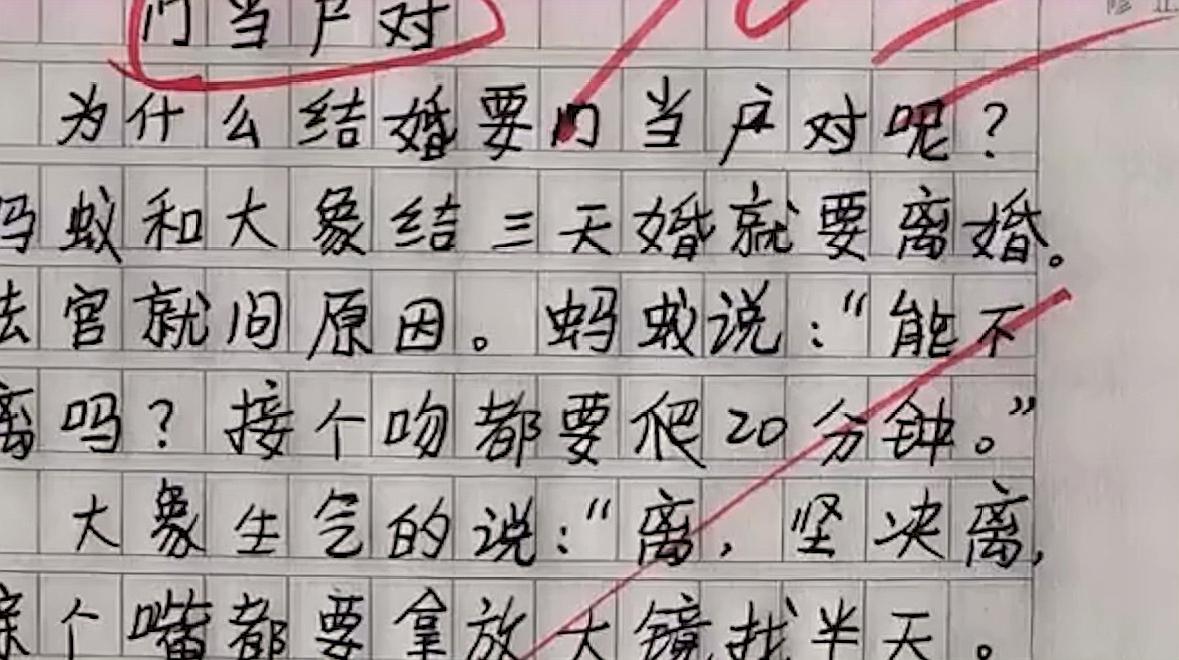 门当户对
为什么结婚要门当户对呢？
蚂蚁和大象结三天婚就要离婚。
法官就问原因。蚂蚁说：“能不
离吗？接个吻都要爬20分钟。”
大象生气的说：“离，坚决离，
亲个嘴都要拿放大镜找半天。